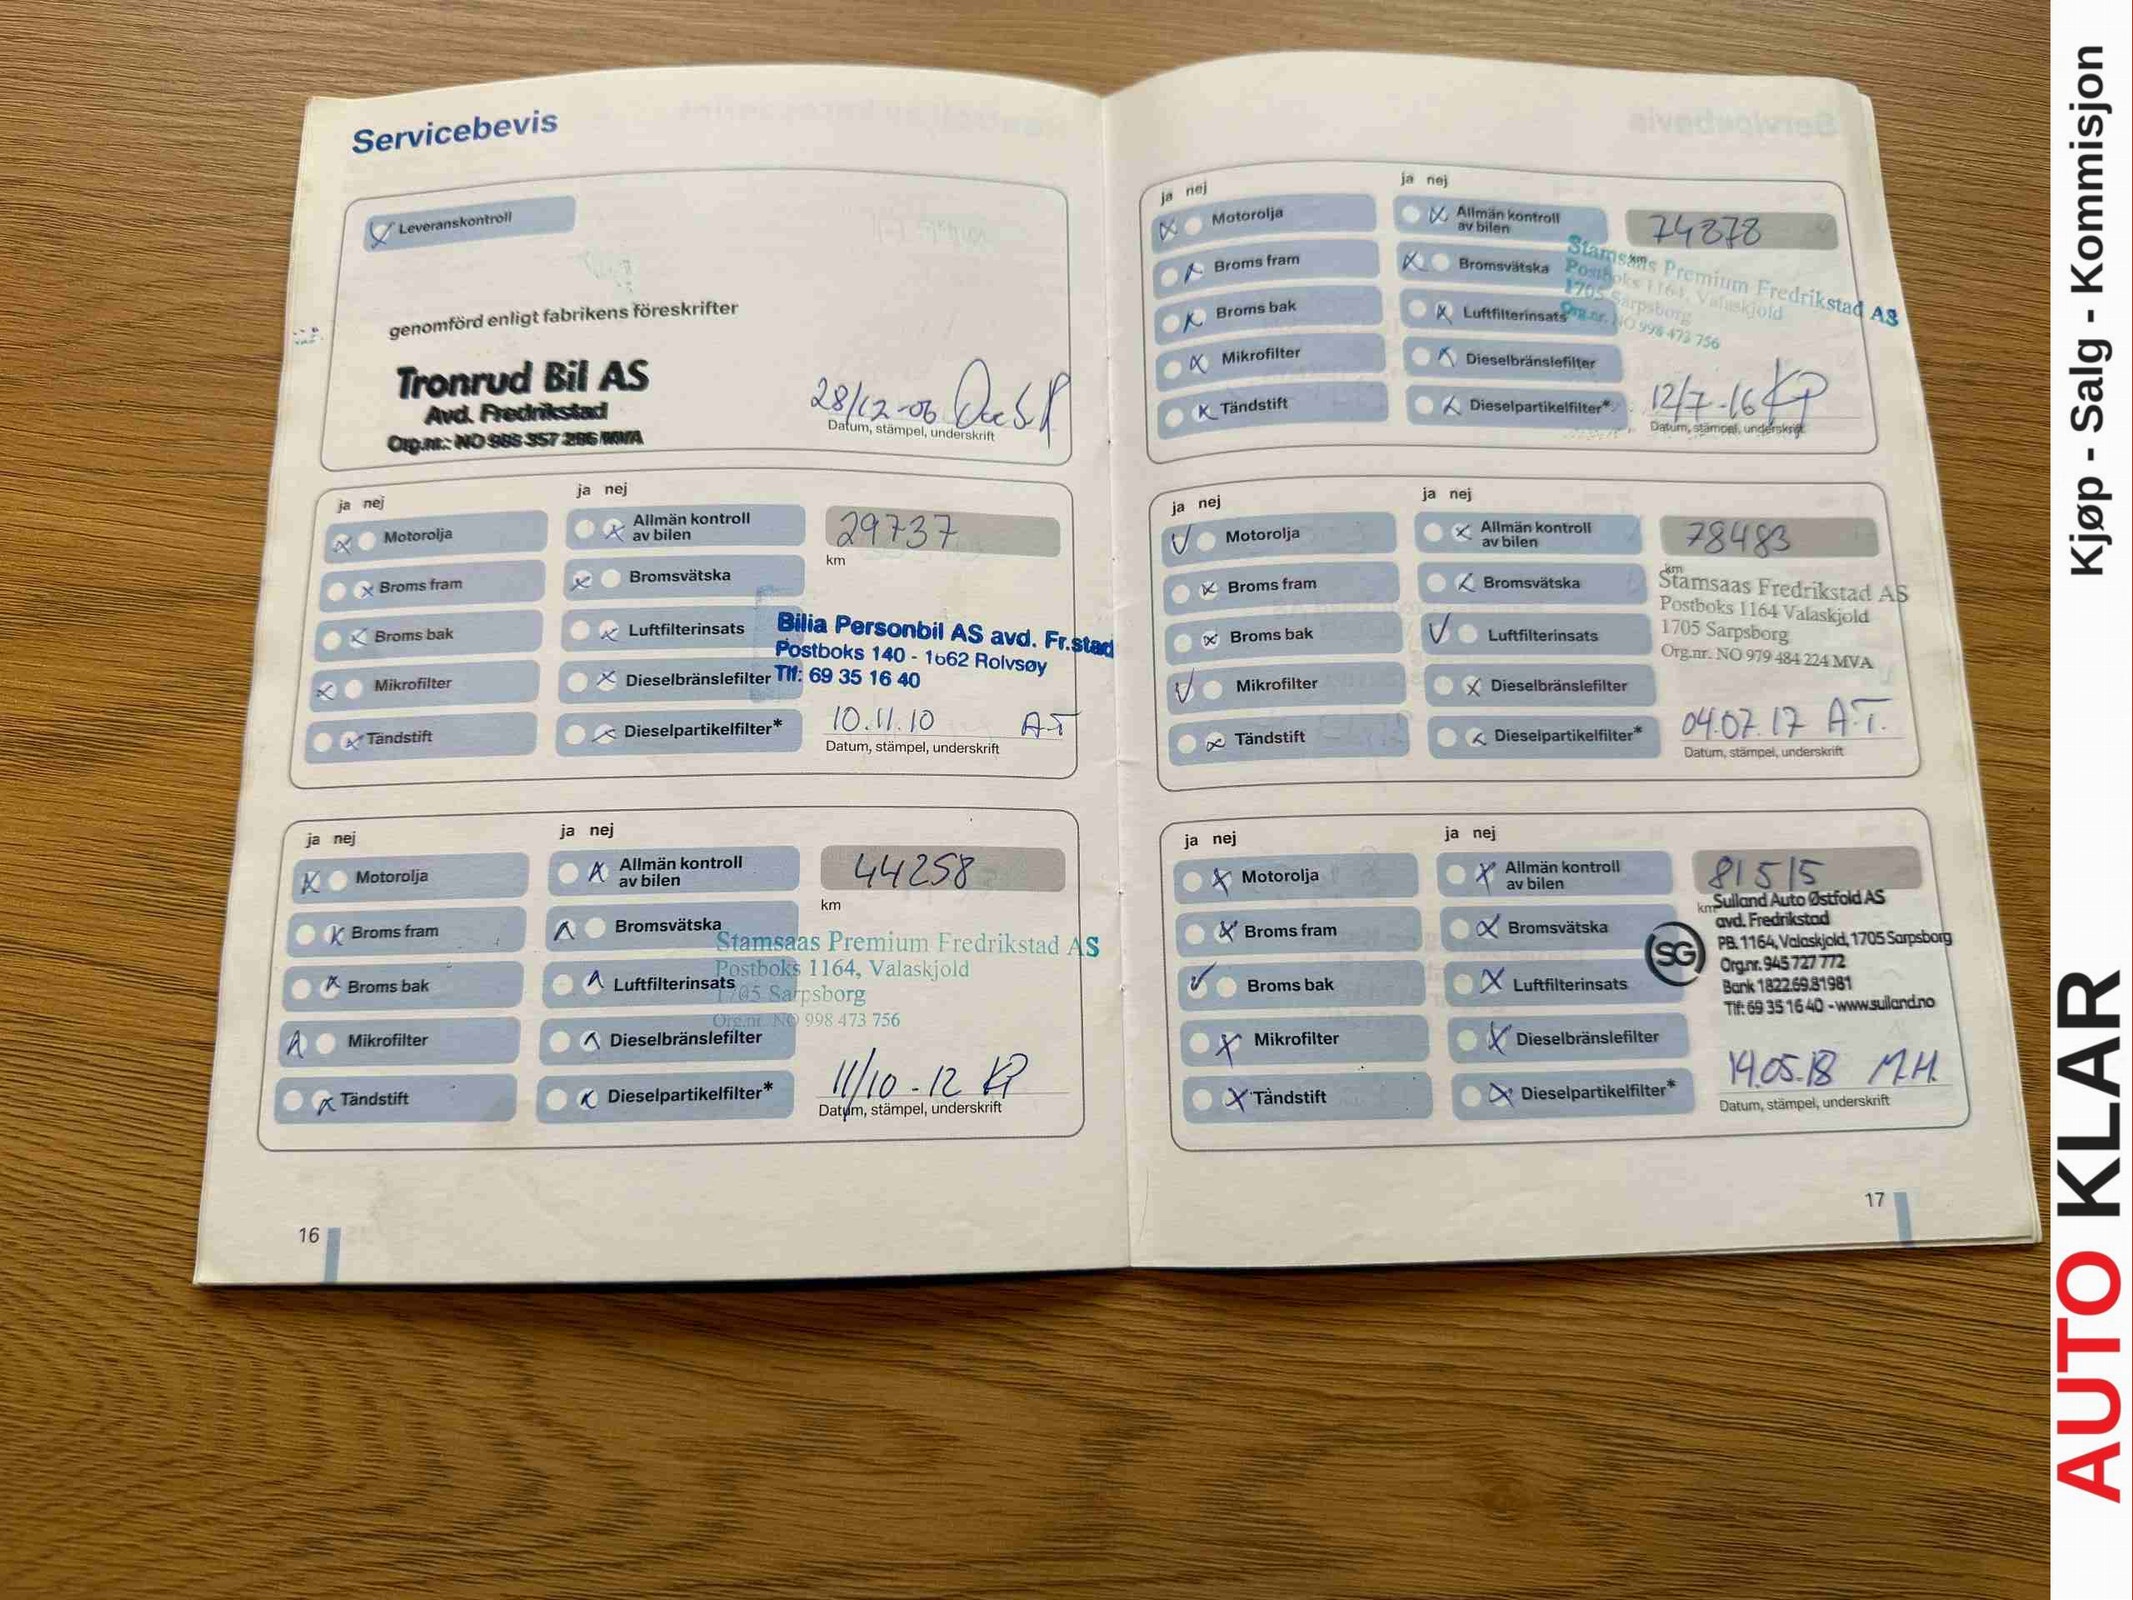 Servicebevis
Leveranskontroll
genomförd enligt fabrikens föreskrifter
Tronrud Bil AS
Avd. Fredrikstad
Org.nr.: NO 988 357 286 MVA
28/12-06
Datum, stämpel, underskrift
ja nej
ja nej
Motorolja
Allmän kontroll
av bilen
29737
km
Broms fram
Bromsvätska
Broms bak
Luftfilterinsats
Bilia Personbil AS avd. Fr.stad
Postboks 140 - 1662 Rolvsøy
Tlf: 69 35 16 40
Mikrofilter
Dieselbränslefilter
Tändstift
Dieselpartikelfilter*
10.11.10 A.T
Datum, stämpel, underskrift
ja nej
ja nej
Motorolja
Allmän kontroll
av bilen
44258
km
Broms fram
Bromsvätska
Stamsaas Premium Fredrikstad AS
Postboks 1164, Valaskjold
1705 Sarpsborg
Org.nr. NO 998 473 756
Broms bak
Luftfilterinsats
Mikrofilter
Dieselbränslefilter
Tändstift
Dieselpartikelfilter*
11/10-12 KP
Datum, stämpel, underskrift
16
ja nej
ja nej
Motorolja
Allmän kontroll
av bilen
74878
km
Broms fram
Bromsvätska
Stamsaas Premium Fredrikstad AS
Postboks 1164, Valaskjold
1705 Sarpsborg
Org.nr. NO 998 473 756
Broms bak
Luftfilterinsats
Mikrofilter
Dieselbränslefilter
Tändstift
Dieselpartikelfilter*
12/7-16 KP
Datum, stämpel, underskrift
ja nej
ja nej
Motorolja
Allmän kontroll
av bilen
78483
km
Stamsaas Fredrikstad AS
Postboks 1164 Valaskjold
1705 Sarpsborg
Org.nr. NO 979 484 224 MVA
Broms fram
Bromsvätska
Broms bak
Luftfilterinsats
Mikrofilter
Dieselbränslefilter
Tändstift
Dieselpartikelfilter*
04.07.17 A.T.
Datum, stämpel, underskrift
ja nej
ja nej
Motorolja
Allmän kontroll
av bilen
81515
km
SG
Sulland Auto Østfold AS
avd. Fredrikstad
PB. 1164, Valaskjold, 1705 Sarpsborg
Org.nr. 945 727 772
Bank 1822.69.81981
Tlf: 69 35 16 40 - www.sulland.no
Broms fram
Bromsvätska
Broms bak
Luftfilterinsats
Mikrofilter
Dieselbränslefilter
Tändstift
Dieselpartikelfilter*
14.05.18 M.H.
Datum, stämpel, underskrift
17
AUTO KLAR
Kjøp - Salg - Kommisjon